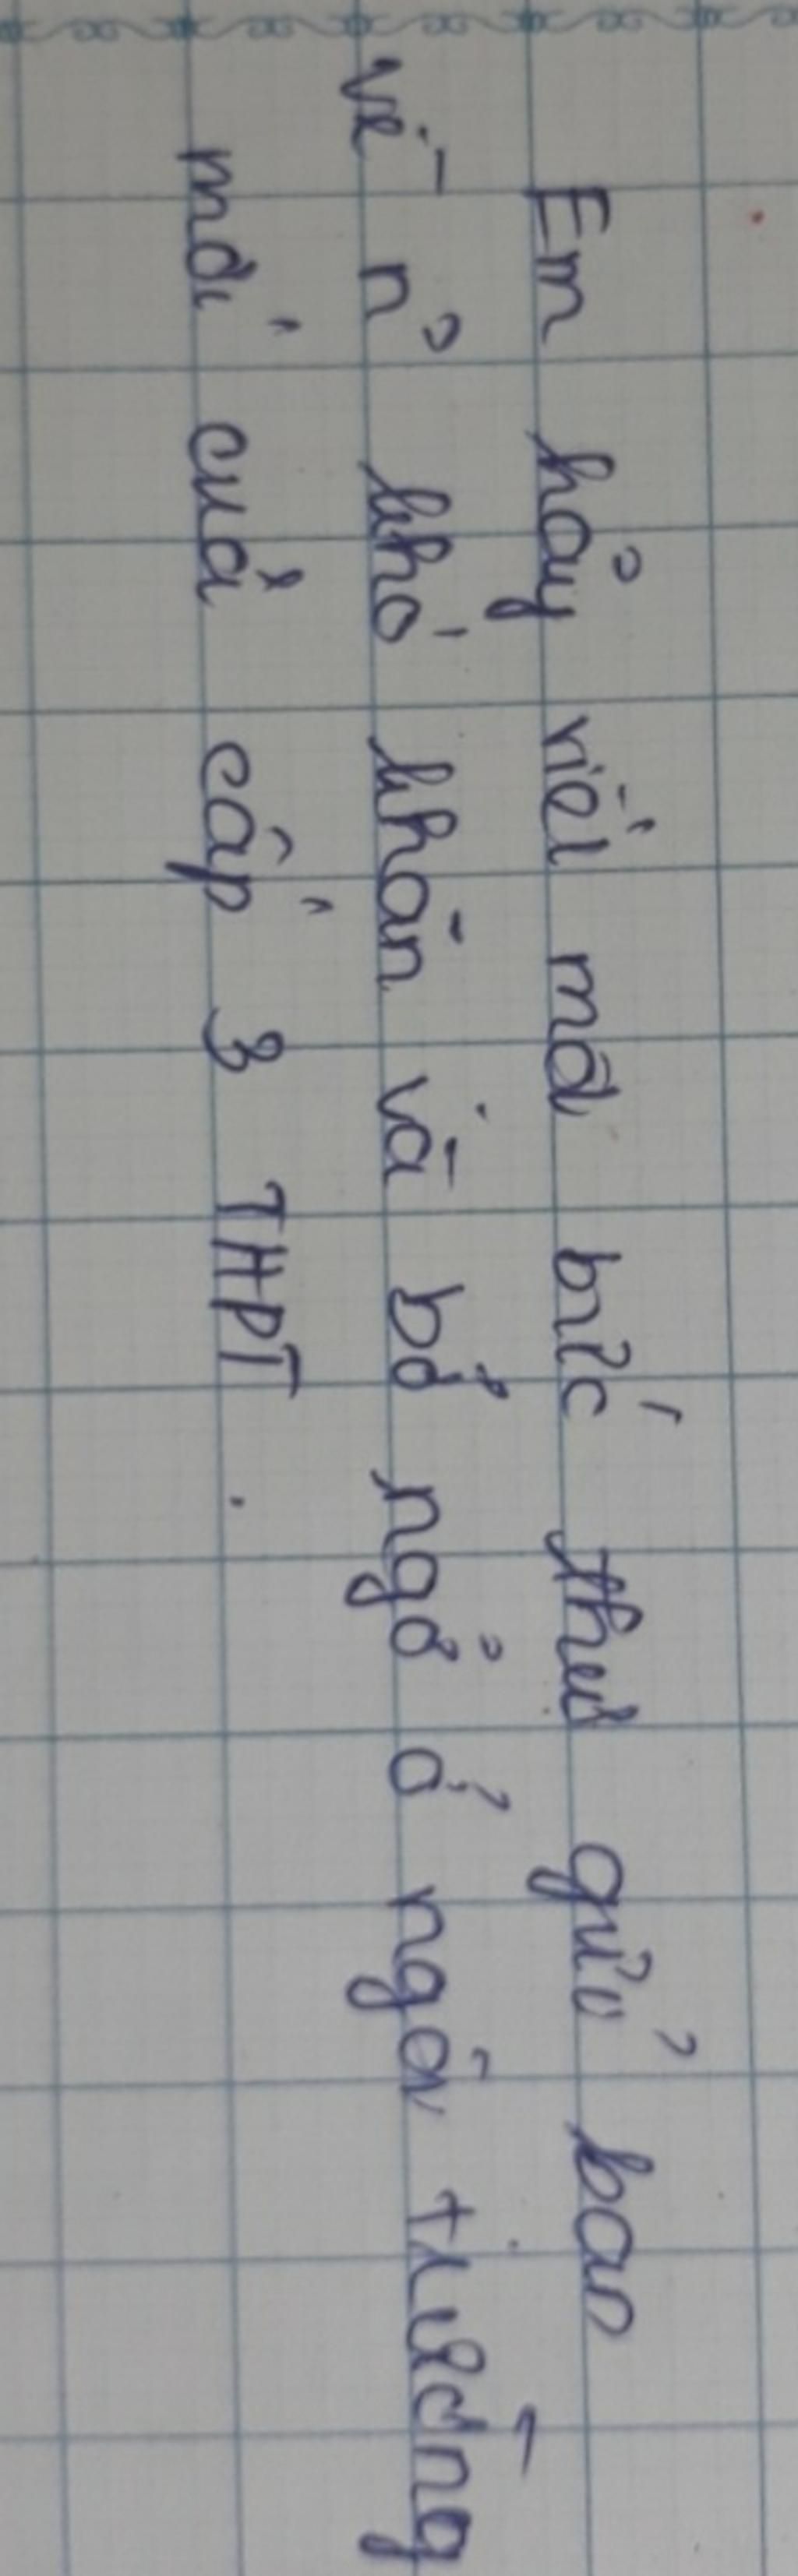 Em hảy viết mô bức thư gửi ban
về nº khó khăn và bở ngở ở ngôi trường
mới của cấp 3 THPT.